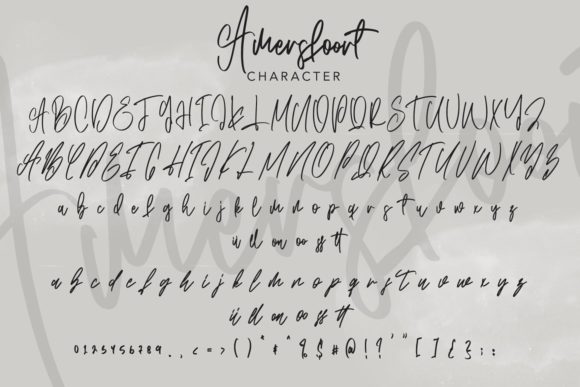 Amersfoort
CHARACTER
ABCDEFGHIJKLMNOPQRSTUVWXYZ
ABCDEFGHIJKLMNOPQRSTUVWXYZ
a b c d e f g h i j k l m n o p q r s t u v w x y z
ii ll on oo ss tt
a b c d e f g h i j k l m n o p q r s t u v w x y z
ii ll on oo ss tt
0123456789 . , < = > ( ) " * ^ % $ # @ ! ? ' " [ ] { } ; :